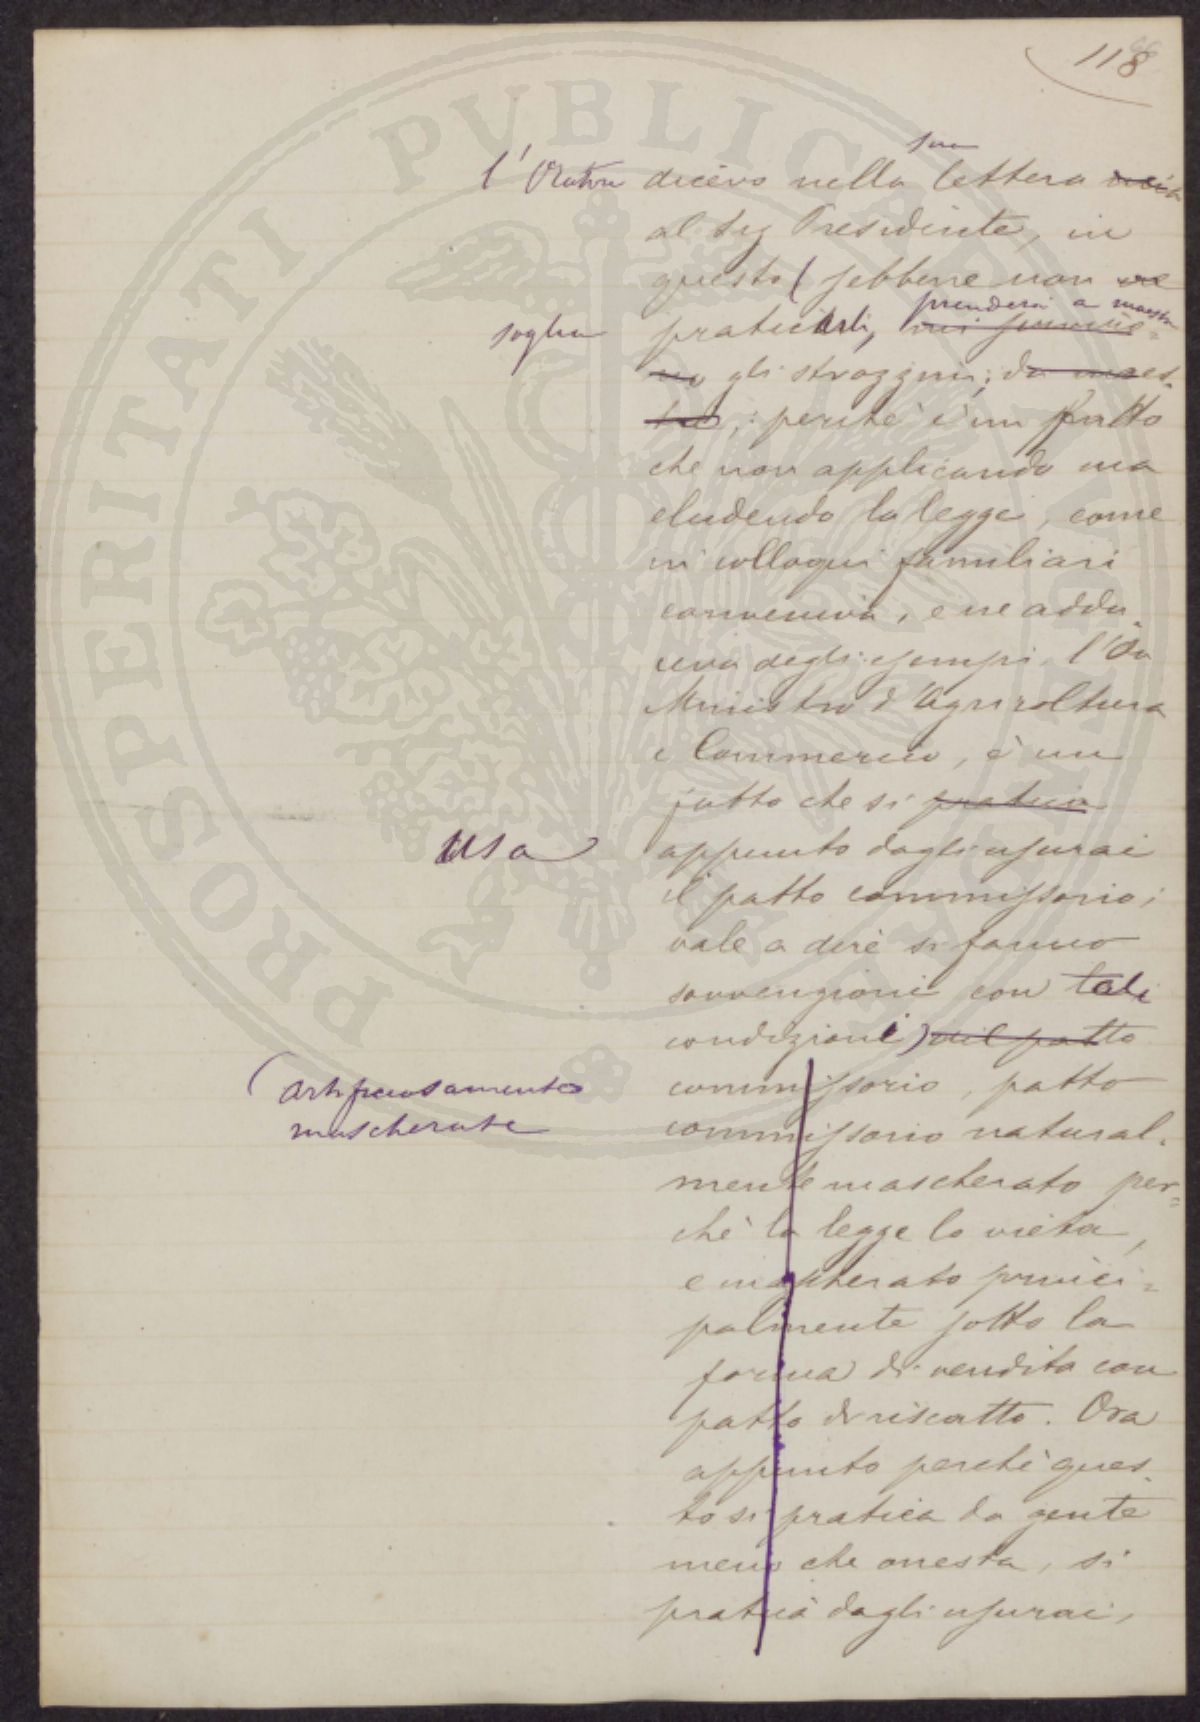 118
sua
l'Oratore dicevo nella lettera
al Sig Presidente, in
questo (sebbene non
prendersi a maestri
soglia praticarli,
gli strozzini; da maes-
tro; perchè è un fatto
che non applicando ma
eludendo la legge, come
in colloqui familiari
conveniva, e ne addu
ceva degli esempi, l'On
Ministro d'Agricoltura
e Commercio, è un
fatto che si pratica
usa appunto dagli usurai
il patto commissorio;
vale a dire si fanno
sovvenzioni con tali
condizioni) del patto
(artifiziosamente commissorio, patto
mascherate commissorio natural-
mente mascherato per=
chè la legge lo vieta,
e mascherato princi=
palmente sotto la
forma di vendita con
patto di riscatto. Ora
appunto perchè ques-
to si pratica da gente
meno che onesta, si
pratica dagli usurai,
PROSPERITATI PVBLICAE